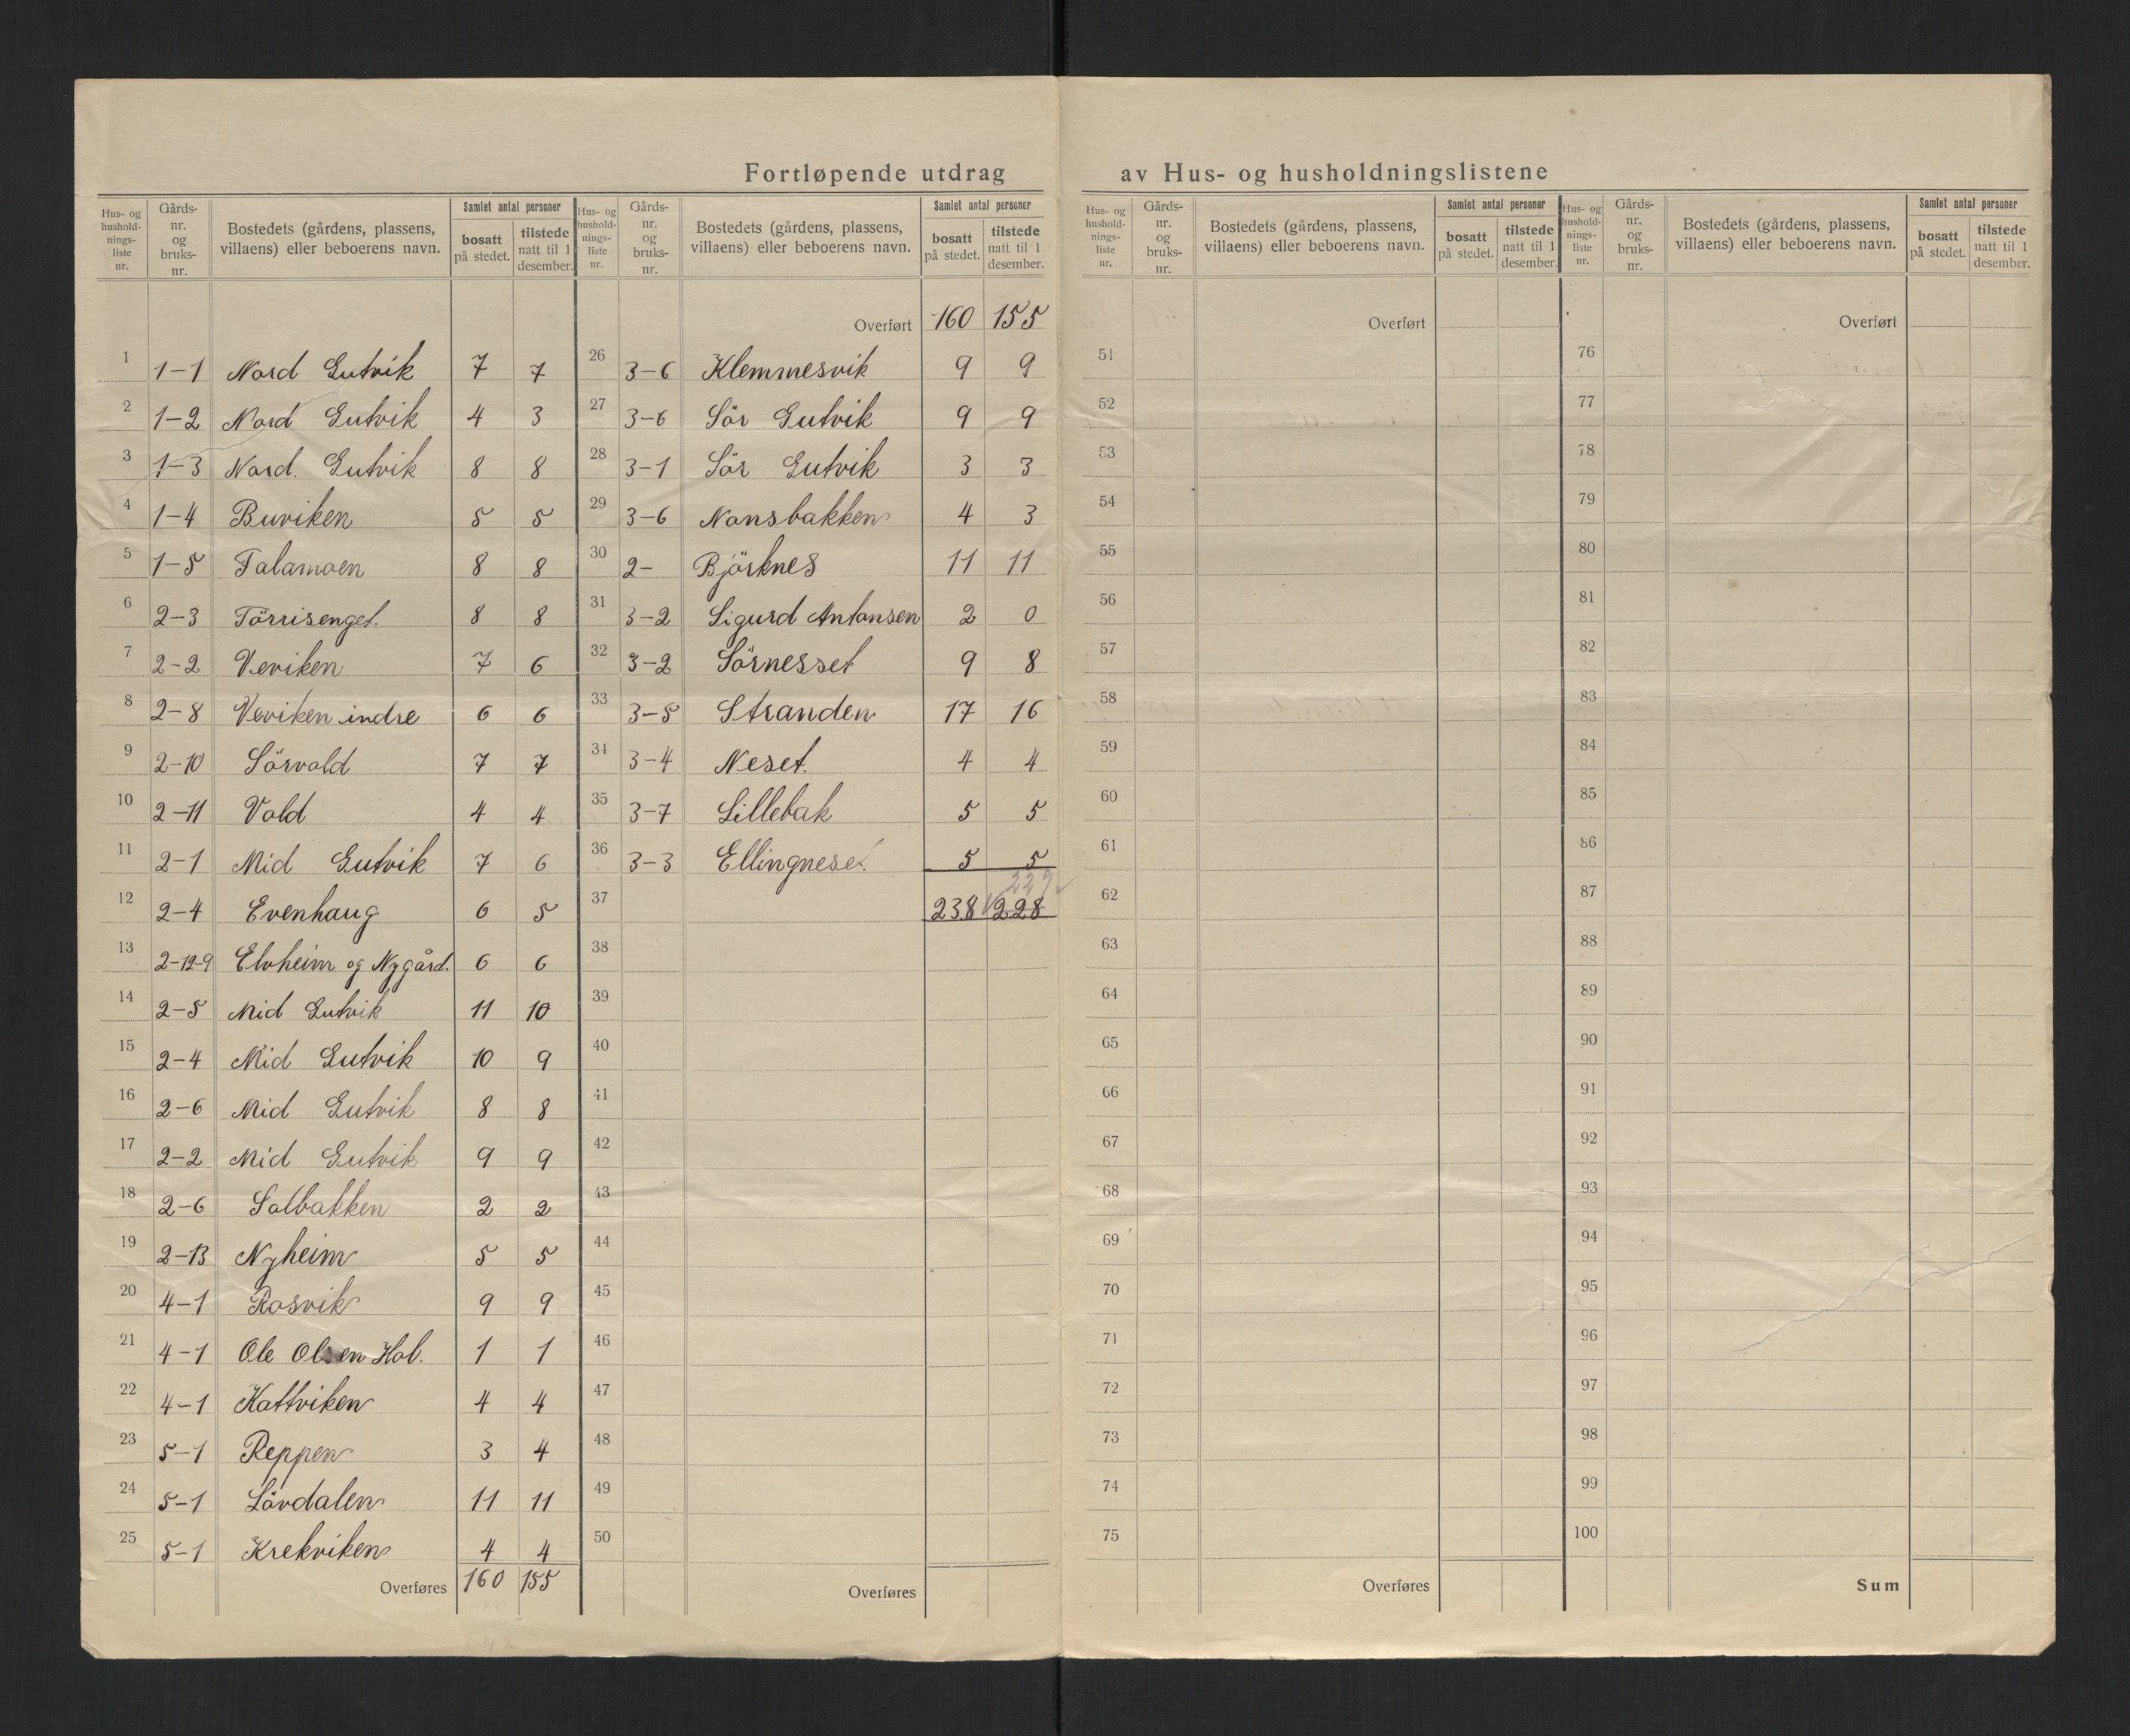 Fortløpende utdrag av Hus- og husholdningslistene
Hus- og hushold-nings-liste nr. Gårds-nr. og bruks-nr. Bostedets (gårdens, plassens, villaens) eller beboerens navn. Samlet antal personer bosatt på stedet. tilstede natt til 1 desember.
1 1-1 Nord Gutvik 7 7
2 1-2 Nord Gutvik 4 3
3 1-3 Nord. Gutvik 8 8
4 1-4 Buviken 5 5
5 1-5 Falamoen 8 8
6 2-3 Törrisenget. 8 8
7 2-2 Veviken 7 6
8 2-8 Veviken indre 6 6
9 2-10 Sörvold 7 7
10 2-11 Vold 4 4
11 2-1 Mid Gutvik 7 6
12 2-4 Evenhaug 6 5
13 2-12-9 Elvheim og Nygård. 6 6
14 2-5 Mid Gutvik 11 10
15 2-4 Mid Gutvik 10 9
16 2-6 Mid Gutvik 8 8
17 2-2 Mid Gutvik 9 9
18 2-6 Solbakken 2 2
19 2-13 Nyheim 5 5
20 4-1 Rosvik 9 9
21 4-1 Ole Olsen Hol. 1 1
22 4-1 Kattviken 4 4
23 5-1 Reppen 3 4
24 5-1 Lövdalen 11 11
25 5-1 Krekviken 4 4
Overføres 160 155
Hus- og hushold-nings-liste nr. Gårds-nr. og bruks-nr. Bostedets (gårdens, plassens, villaens) eller beboerens navn. Samlet antal personer bosatt på stedet. tilstede natt til 1 desember.
Overført 160 155
26 3-6 Klemmesvik 9 9
27 3-6 Sör Gutvik 9 9
28 3-1 Sör Gutvik 3 3
29 3-6 Nonsbakken 4 3
30 2- Björknes 11 11
31 3-2 Sigurd Antonsen 2 0
32 3-2 Sörnesset 9 8
33 3-5 Stranden 17 16
34 3-4 Neset. 4 4
35 3-7 Lillebak 5 5
36 3-3 Ellingneset. 5 5
227
37 238 228
38
39
40
41
42
43
44
45
46
47
48
49
50
Overføres
Hus- og hushold-nings-liste nr. Gårds-nr. og bruks-nr. Bostedets (gårdens, plassens, villaens) eller beboerens navn. Samlet antal personer bosatt på stedet. tilstede natt til 1 desember.
Overført
51
52
53
54
55
56
57
58
59
60
61
62
63
64
65
66
67
68
69
70
71
72
73
74
75
Overføres
Hus- og hushold-nings-liste nr. Gårds-nr. og bruks-nr. Bostedets (gårdens, plassens, villaens) eller beboerens navn. Samlet antal personer bosatt på stedet. tilstede natt til 1 desember.
Overført
76
77
78
79
80
81
82
83
84
85
86
87
88
89
90
91
92
93
94
95
96
97
98
99
100
Sum